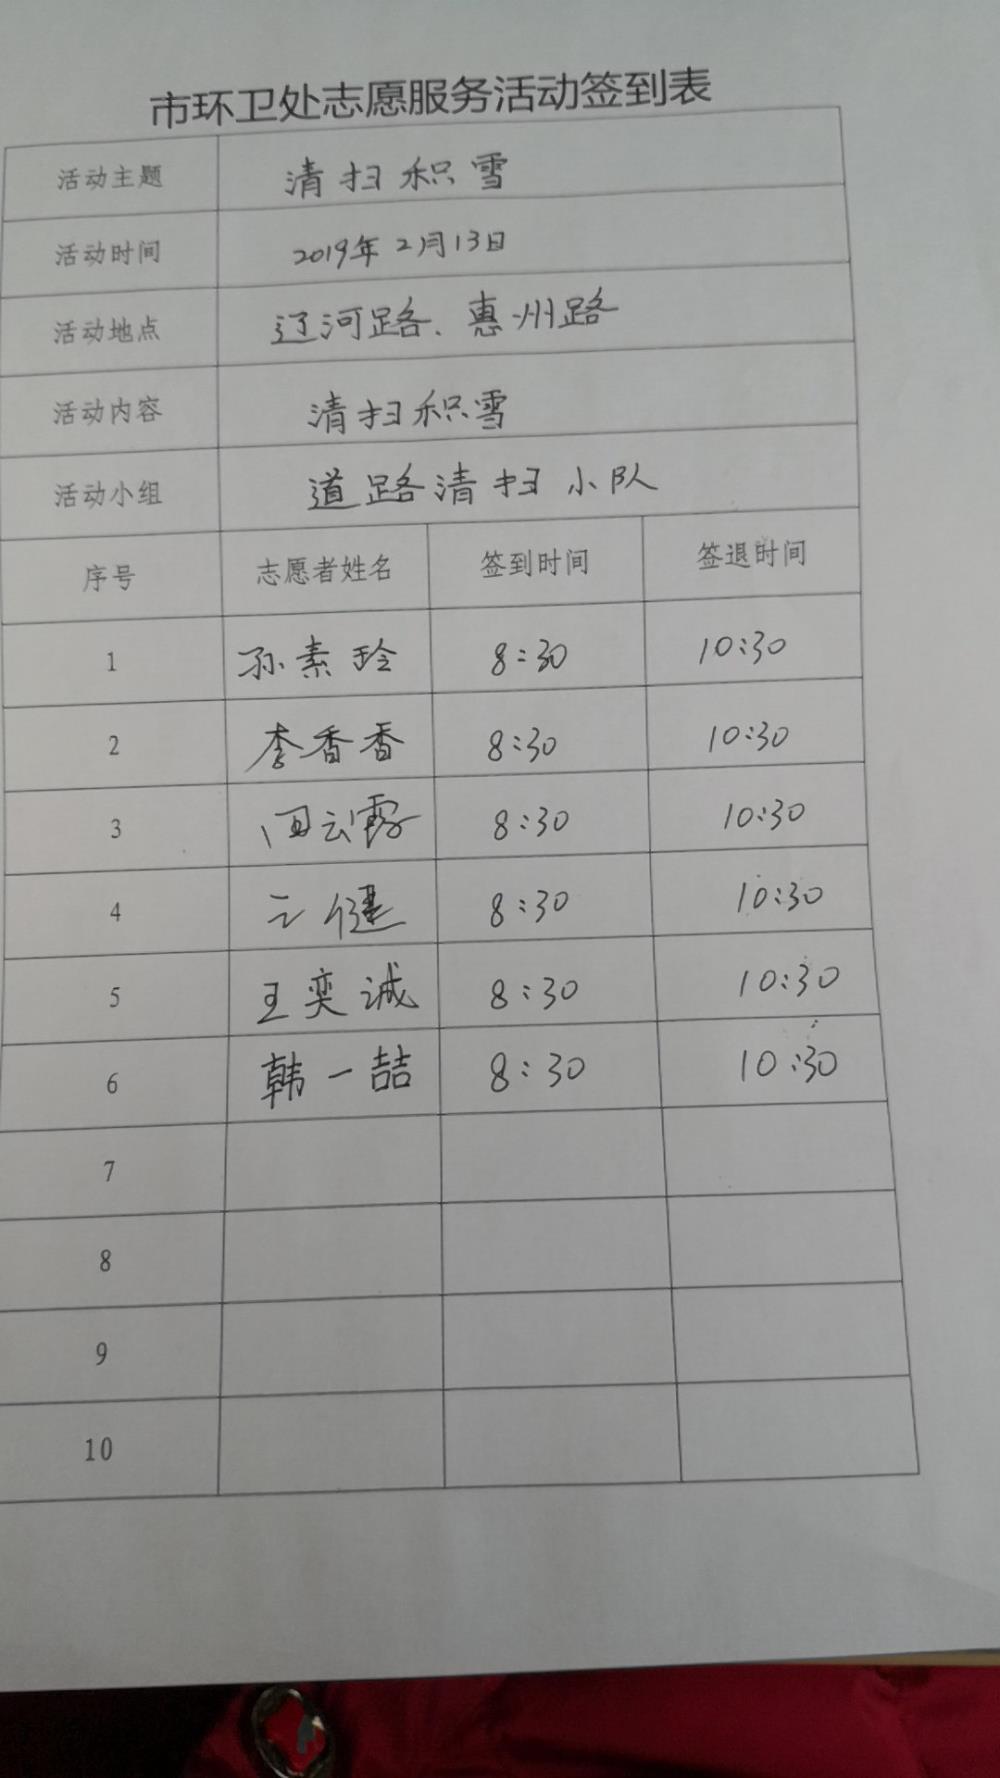 市环卫处志愿服务活动签到表
活动主题 清扫积雪
活动时间 2019年2月13日
活动地点 辽河路、惠州路
活动内容 清扫积雪
活动小组 道路清扫小队
序号 志愿者姓名 签到时间 签退时间
1 孙素玲 8:30 10:30
2 李香香 8:30 10:30
3 田云霞 8:30 10:30
4 云健 8:30 10:30
5 王奕诚 8:30 10:30
6 韩一喆 8:30 10:30
7
8
9
10